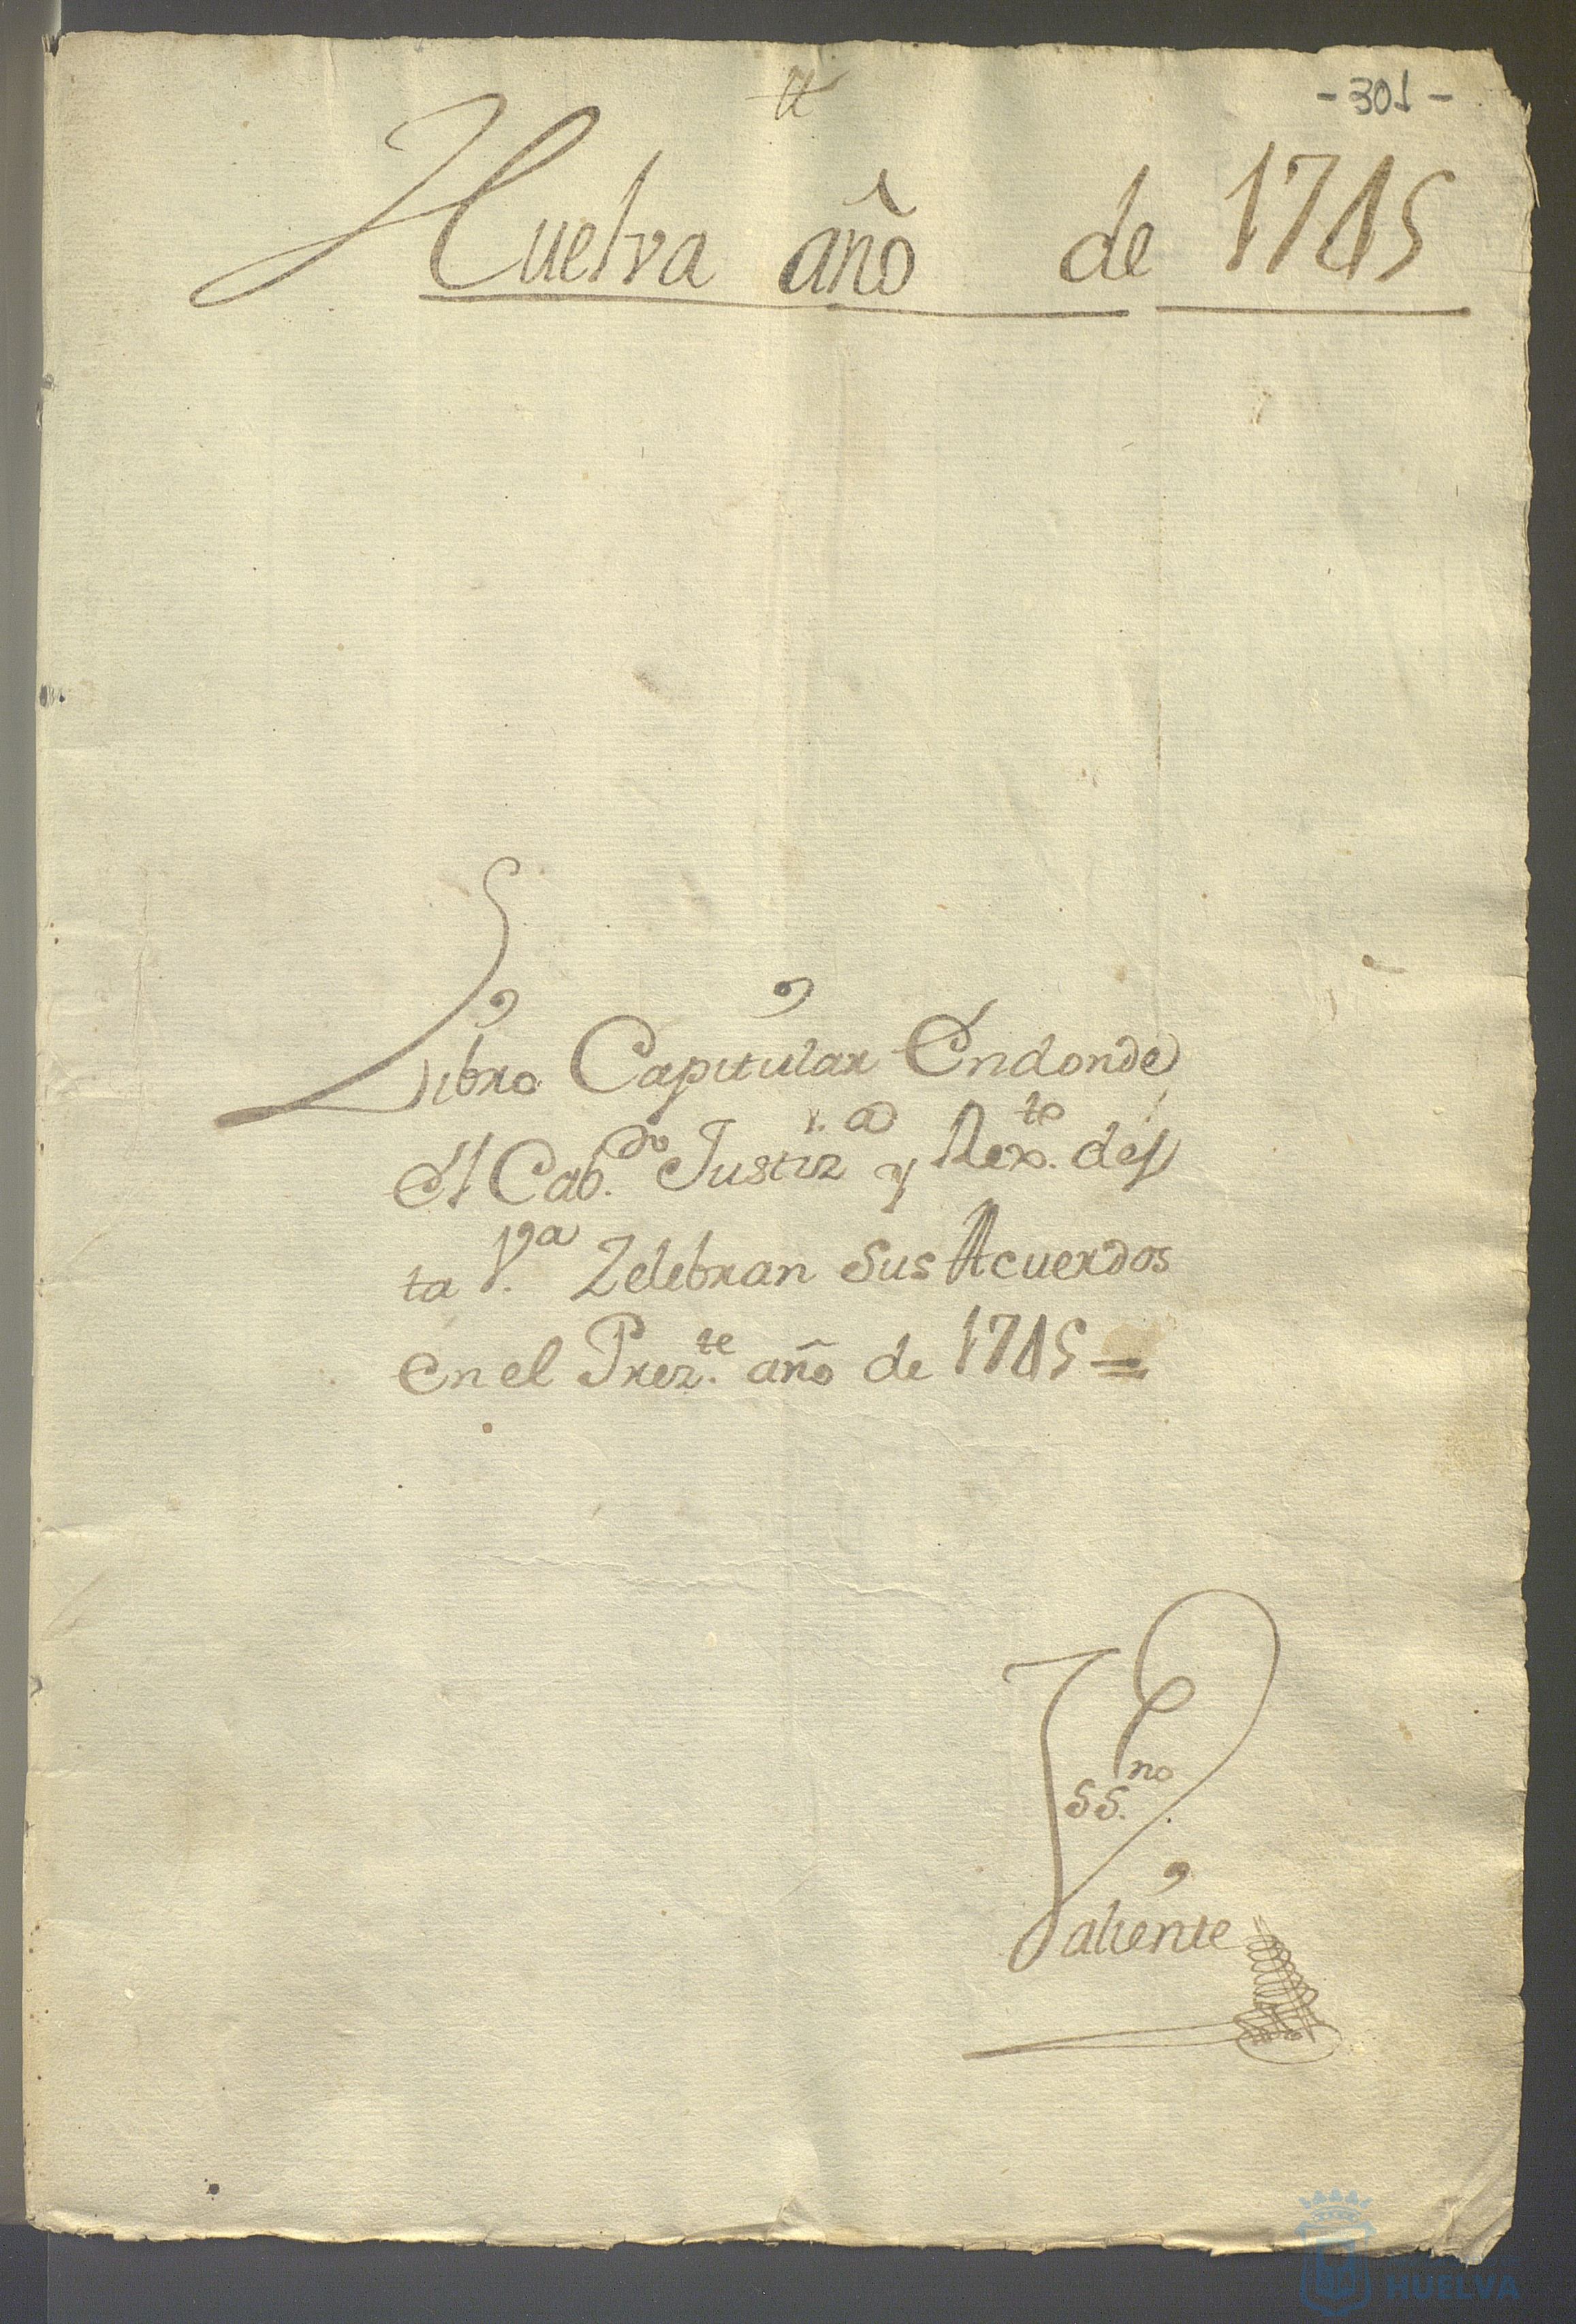 -301-
Huelva año de 1745
Libro Capitular Endonde
el Cab.do Justiz.a y Rex.to des
ta V.a Zelebran Sus Acuerdos
en el Prez.te año de 1745=
Ess.no
Valiente
HUELVA